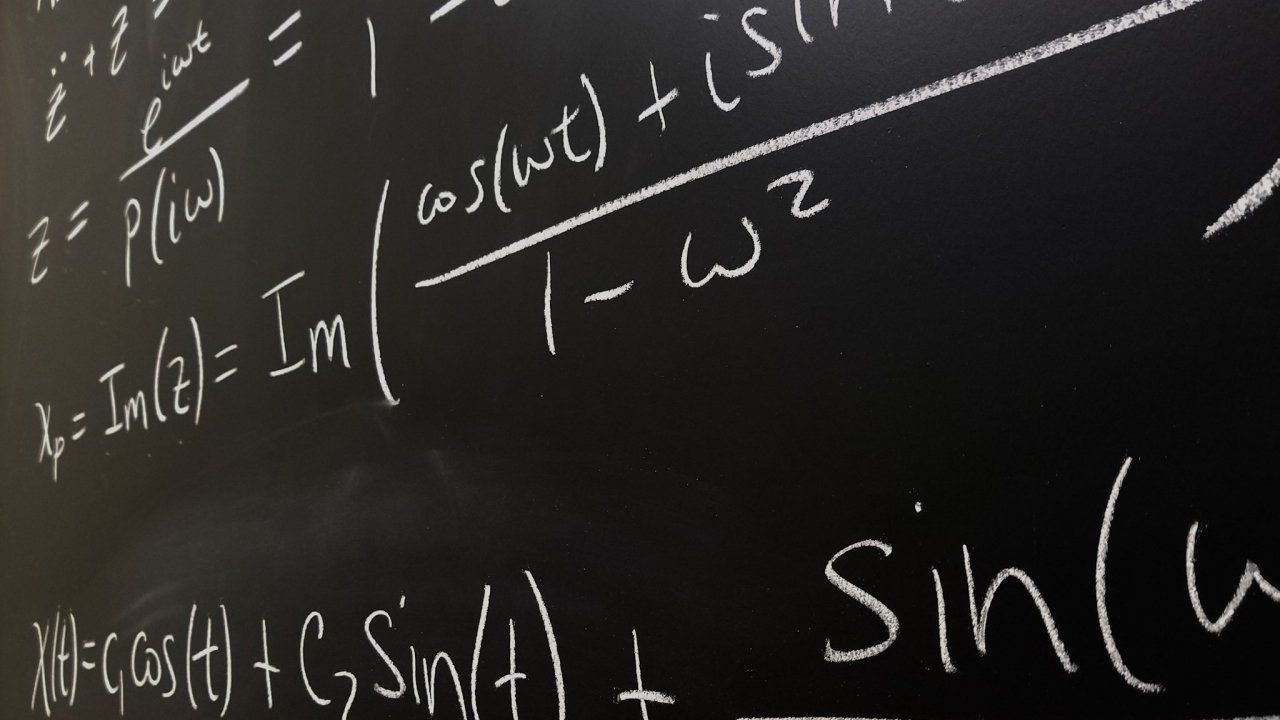 z̈ + z =
z = e^{iωt} / p(iω) = 1
x_p = Im(z) = Im( (cos(ωt) + i sin / 1 - ω²
x(t) = C₁cos(t) + C₂ sin(t) + sin(ω